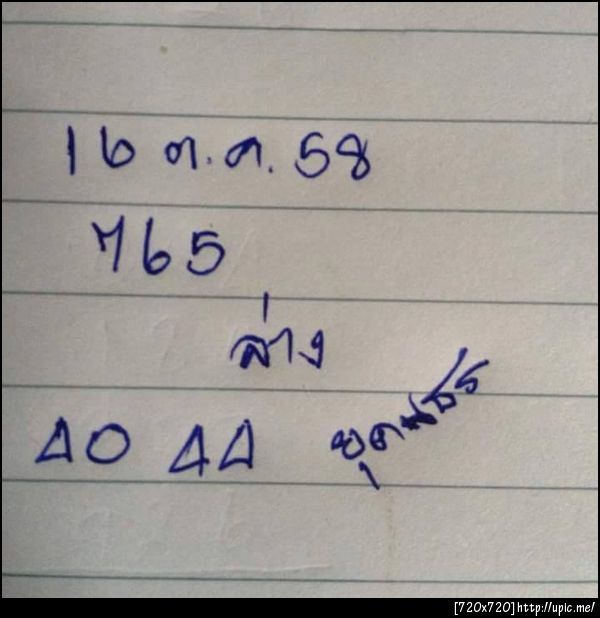 16 ต.ค. 58
765
ล่าง
40 44
[720x720]http://upic.me/